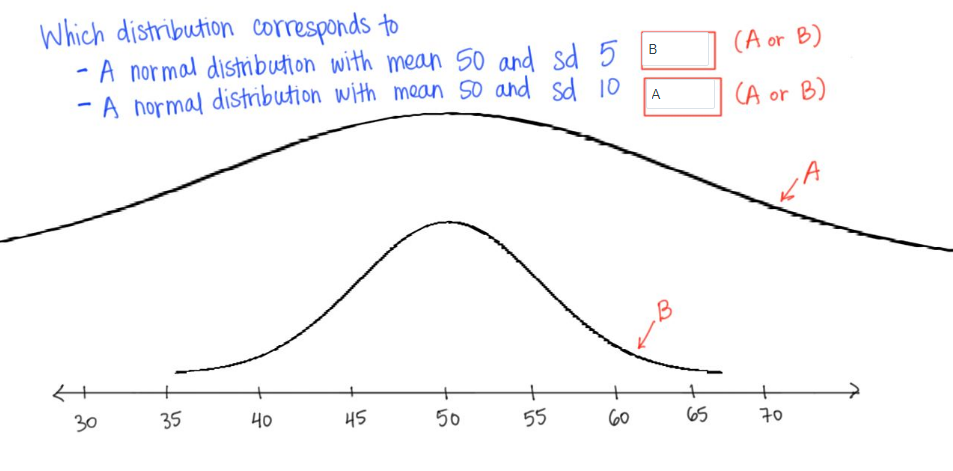 Which distribution corresponds to
- A normal distribution with mean 50 and sd 5 B (A or B)
- A normal distribution with mean 50 and sd 10 A (A or B)
A
B
30 35 40 45 50 55 60 65 70